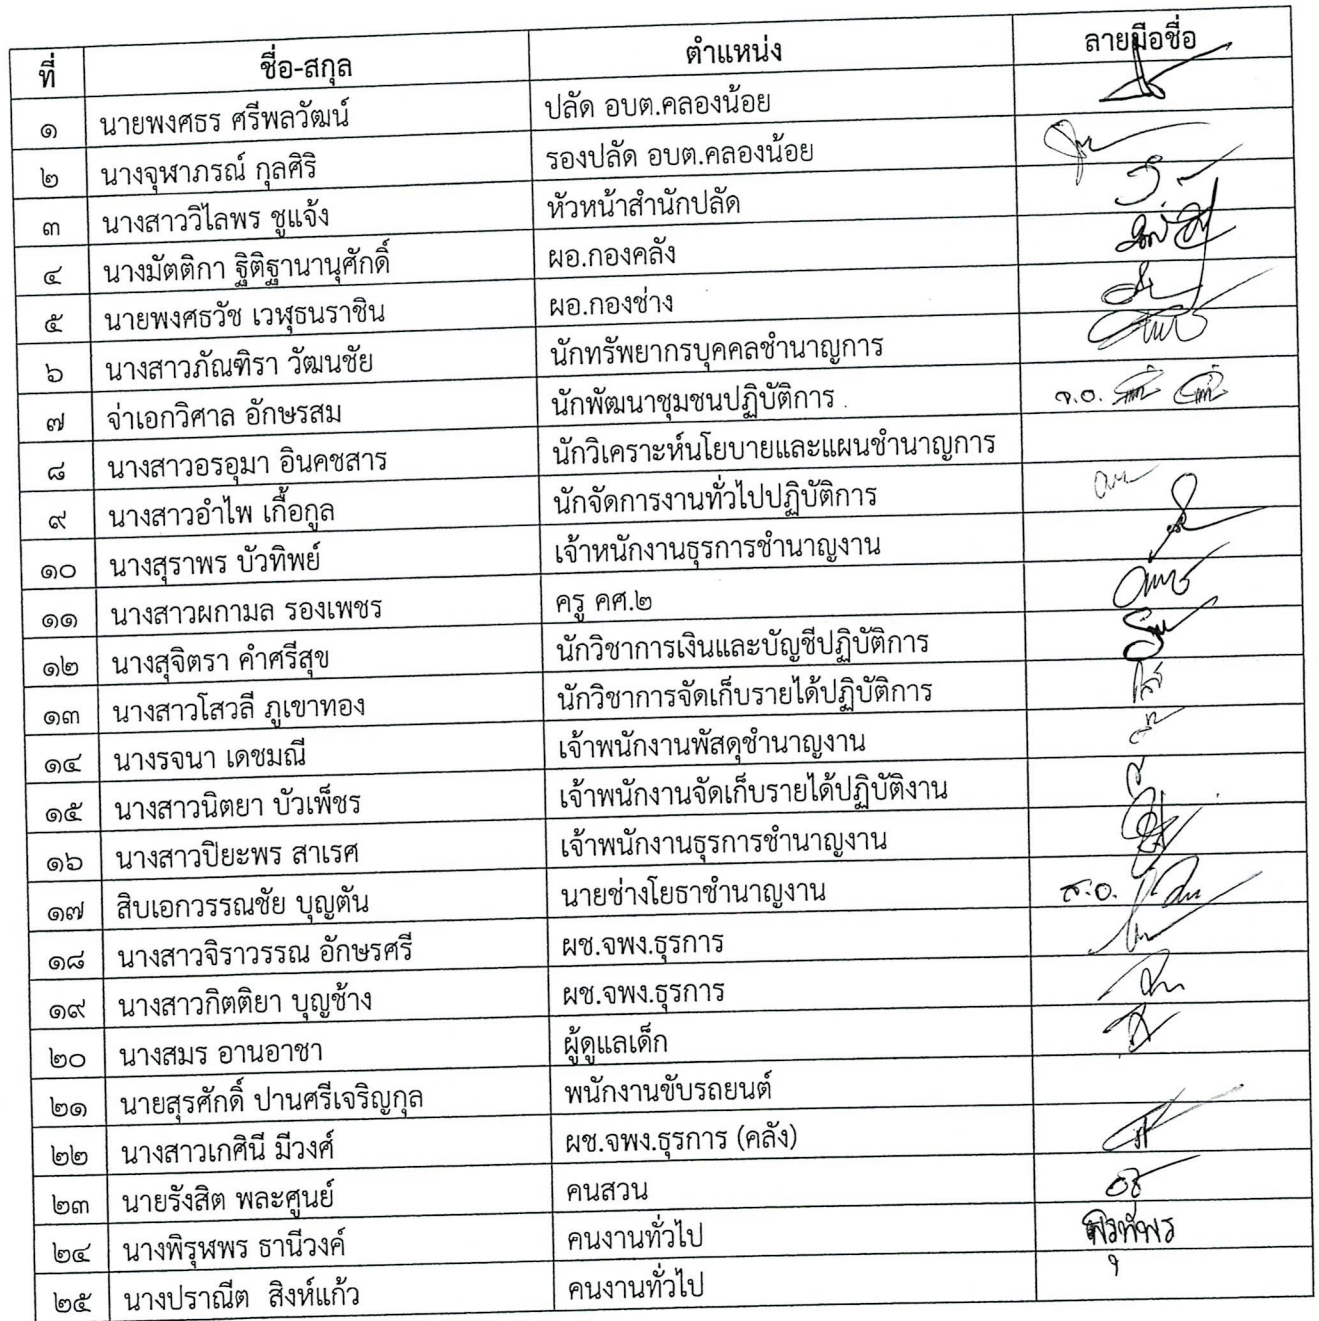 ที่ ชื่อ-สกุล ตำแหน่ง ลายมือชื่อ
๑ นายพงศธร ศรีพลวัฒน์ ปลัด อบต.คลองน้อย
๒ นางจุฬาภรณ์ กุลศิริ รองปลัด อบต.คลองน้อย
๓ นางสาววิไลพร ชูแจ้ง หัวหน้าสำนักปลัด
๔ นางมัตติกา ฐิติฐานานุศักดิ์ ผอ.กองคลัง
๕ นายพงศธวัช เวฬุธนราชิน ผอ.กองช่าง
๖ นางสาวภัณฑิรา วัฒนชัย นักทรัพยากรบุคคลชำนาญการ
๗ จ่าเอกวิศาล อักษรสม นักพัฒนาชุมชนปฏิบัติการ จ.อ.
๘ นางสาวอรอุมา อินคชสาร นักวิเคราะห์นโยบายและแผนชำนาญการ
๙ นางสาวอำไพ เกื้อกูล นักจัดการงานทั่วไปปฏิบัติการ
๑๐ นางสุราพร บัวทิพย์ เจ้าหนักงานธุรการชำนาญงาน
๑๑ นางสาวผกามล รองเพชร ครู คศ.๒
๑๒ นางสุจิตรา คำศรีสุข นักวิชาการเงินและบัญชีปฏิบัติการ
๑๓ นางสาวโสวลี ภูเขาทอง นักวิชาการจัดเก็บรายได้ปฏิบัติการ
๑๔ นางรจนา เดชมณี เจ้าพนักงานพัสดุชำนาญงาน
๑๕ นางสาวนิตยา บัวเพ็ชร เจ้าพนักงานจัดเก็บรายได้ปฏิบัติงาน
๑๖ นางสาวปิยะพร สาเรศ เจ้าพนักงานธุรการชำนาญงาน
๑๗ สิบเอกวรรณชัย บุญตัน นายช่างโยธาชำนาญงาน ส.อ.
๑๘ นางสาวจิราวรรณ อักษรศรี ผช.จพง.ธุรการ
๑๙ นางสาวกิตติยา บุญช้าง ผช.จพง.ธุรการ
๒๐ นางสมร อานอาชา ผู้ดูแลเด็ก
๒๑ นายสุรศักดิ์ ปานศรีเจริญกุล พนักงานขับรถยนต์
๒๒ นางสาวเกศินี มีวงศ์ ผช.จพง.ธุรการ (คลัง)
๒๓ นายรังสิต พละศูนย์ คนสวน
๒๔ นางพิรุฬพร ธานีวงค์ คนงานทั่วไป พิรุฬพร
๒๕ นางปราณีต สิงห์แก้ว คนงานทั่วไป